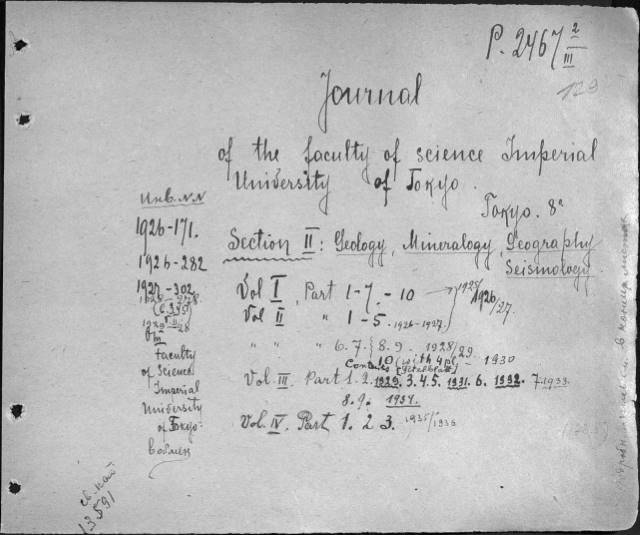 P. 2467 2/III
129
Journal
of the faculty of science Imperial
University of Tokyo.
Tokyo. 8°
Section II: Geology, Mineralogy, Geography
Seismology.
Vol I, Part 1-7. - 10 → 1925/
1926/27.
Vol II " 1-5. 1926-1927.
" " " 6. 7. 8. 9. 1928/29.
10 (with 4 pl. - 1930
Contents
Vol. III. Part 1. 2. 1929. 3. 4. 5. 1931. 6. 1932. 7. 1933.
8. 9. 1934.
Vol. IV. Part 1. 2 3. 1935/1936
Инв. N.N
1926-171.
1926-282
1927-302
Om
Faculty
of Science
Imperial
University
of Tokyo.
св. кат
13591